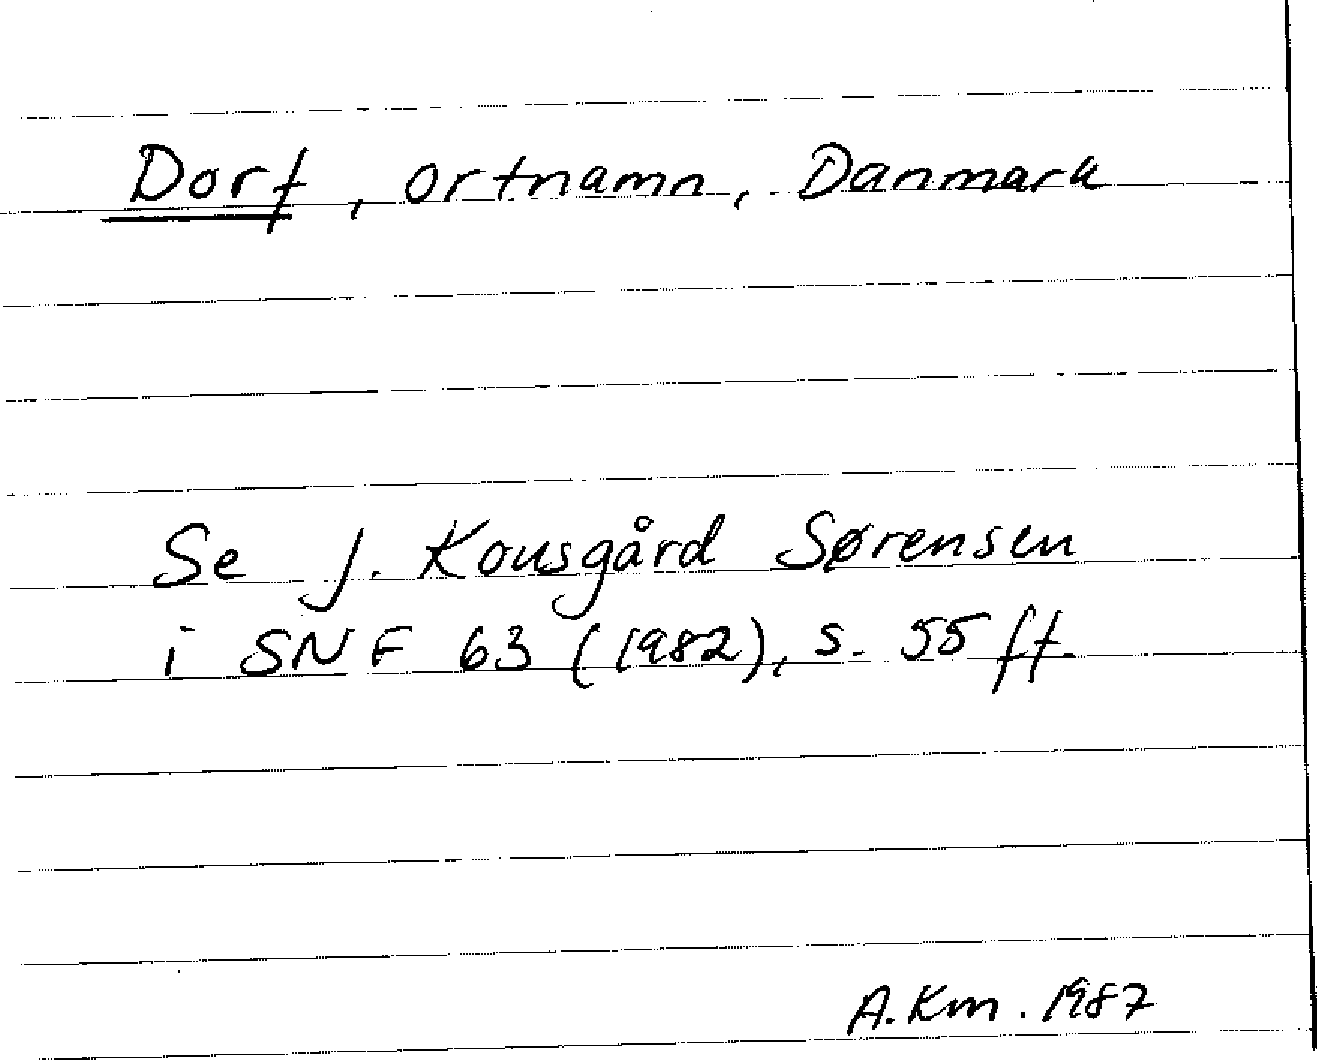 Dorf, ortnamn, Danmark
Se J. Kousgård Sørensen
i SNF 63 (1982), s. 55 ff.
A. Km. 1987